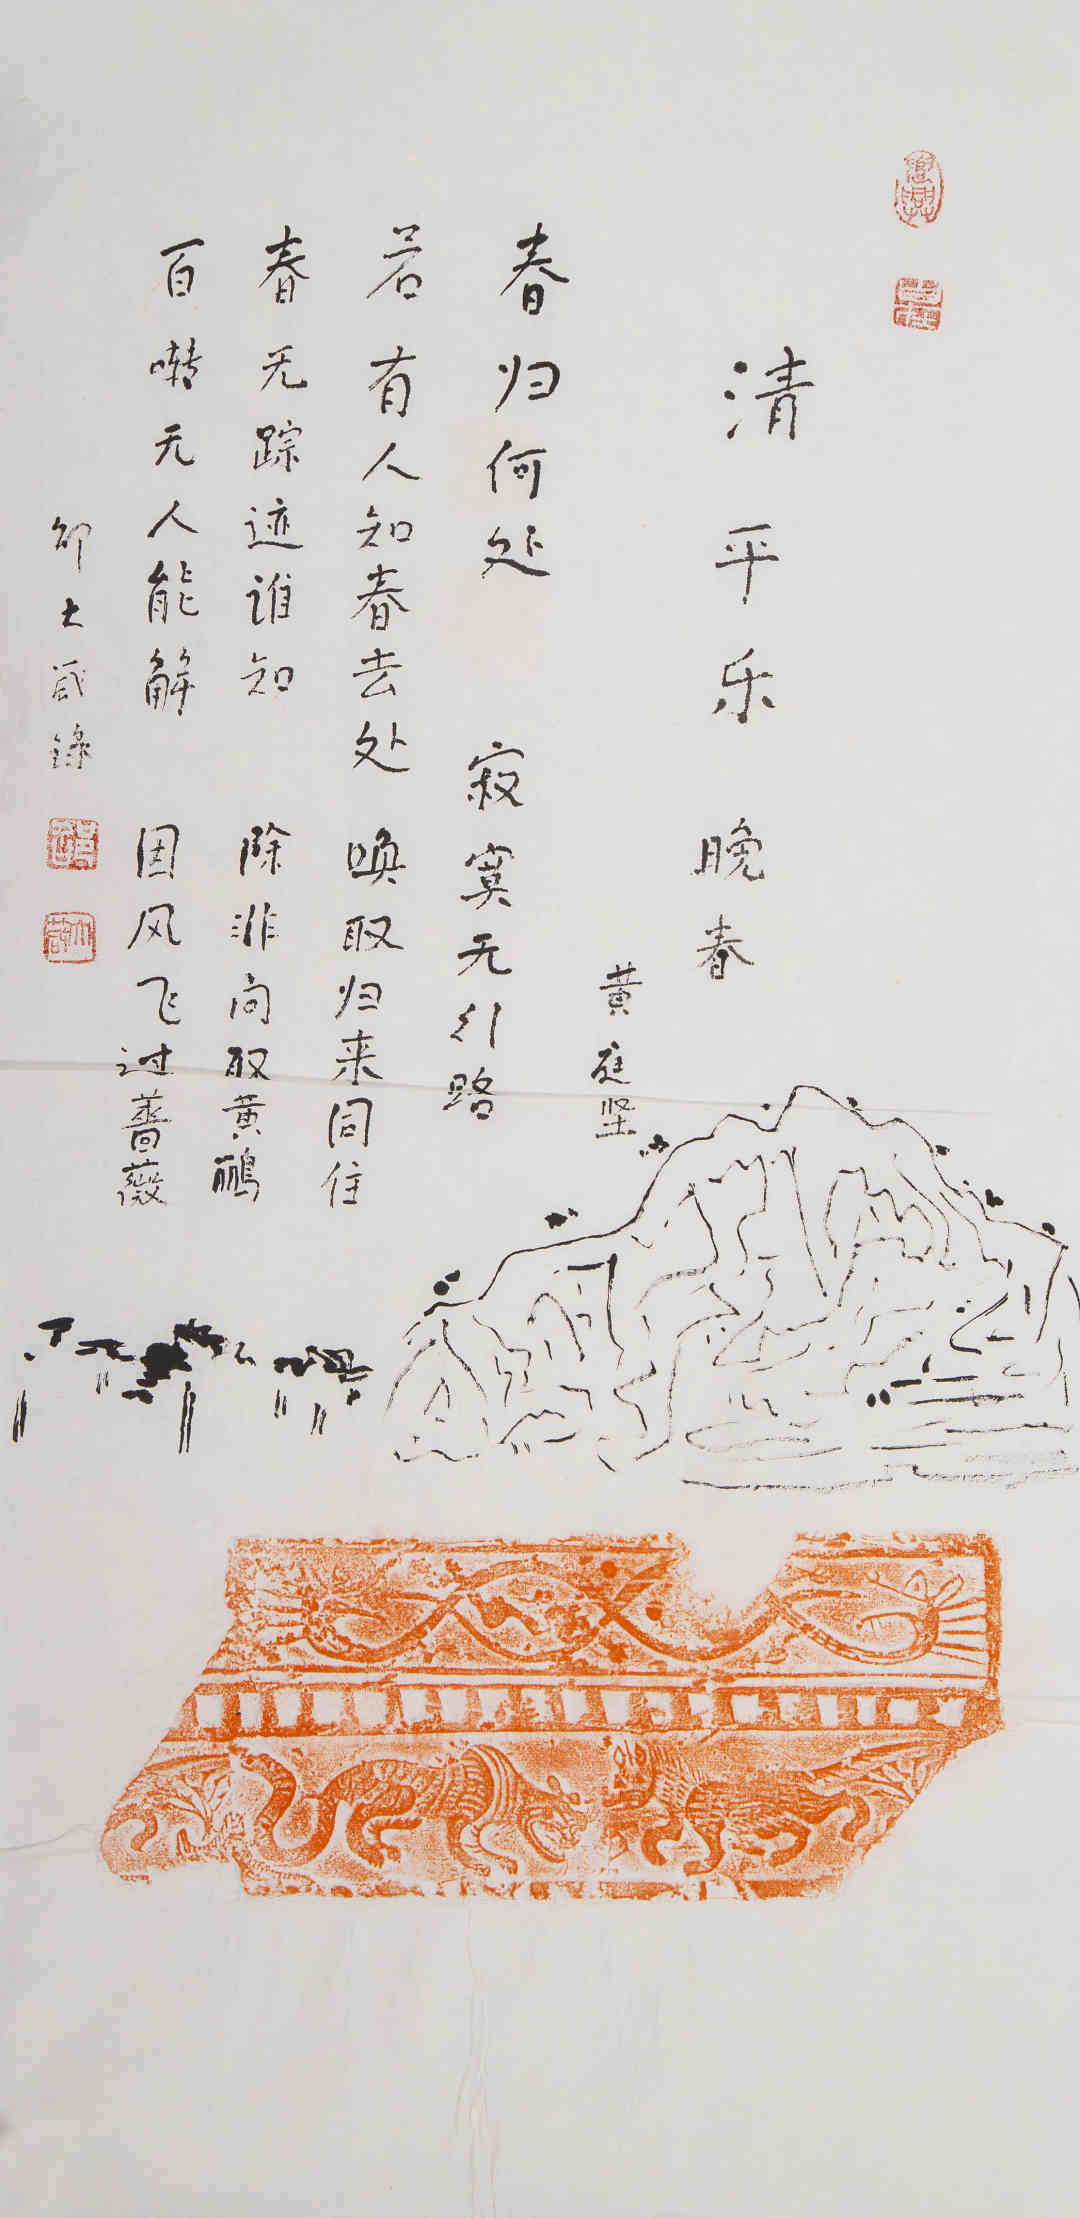 清平乐 晚春
黄庭坚
春归何处 寂寞无行路
若有人知春去处 唤取归来同住
春无踪迹谁知 除非问取黄鹂
百啭无人能解 因风飞过蔷薇
邵大箴錄